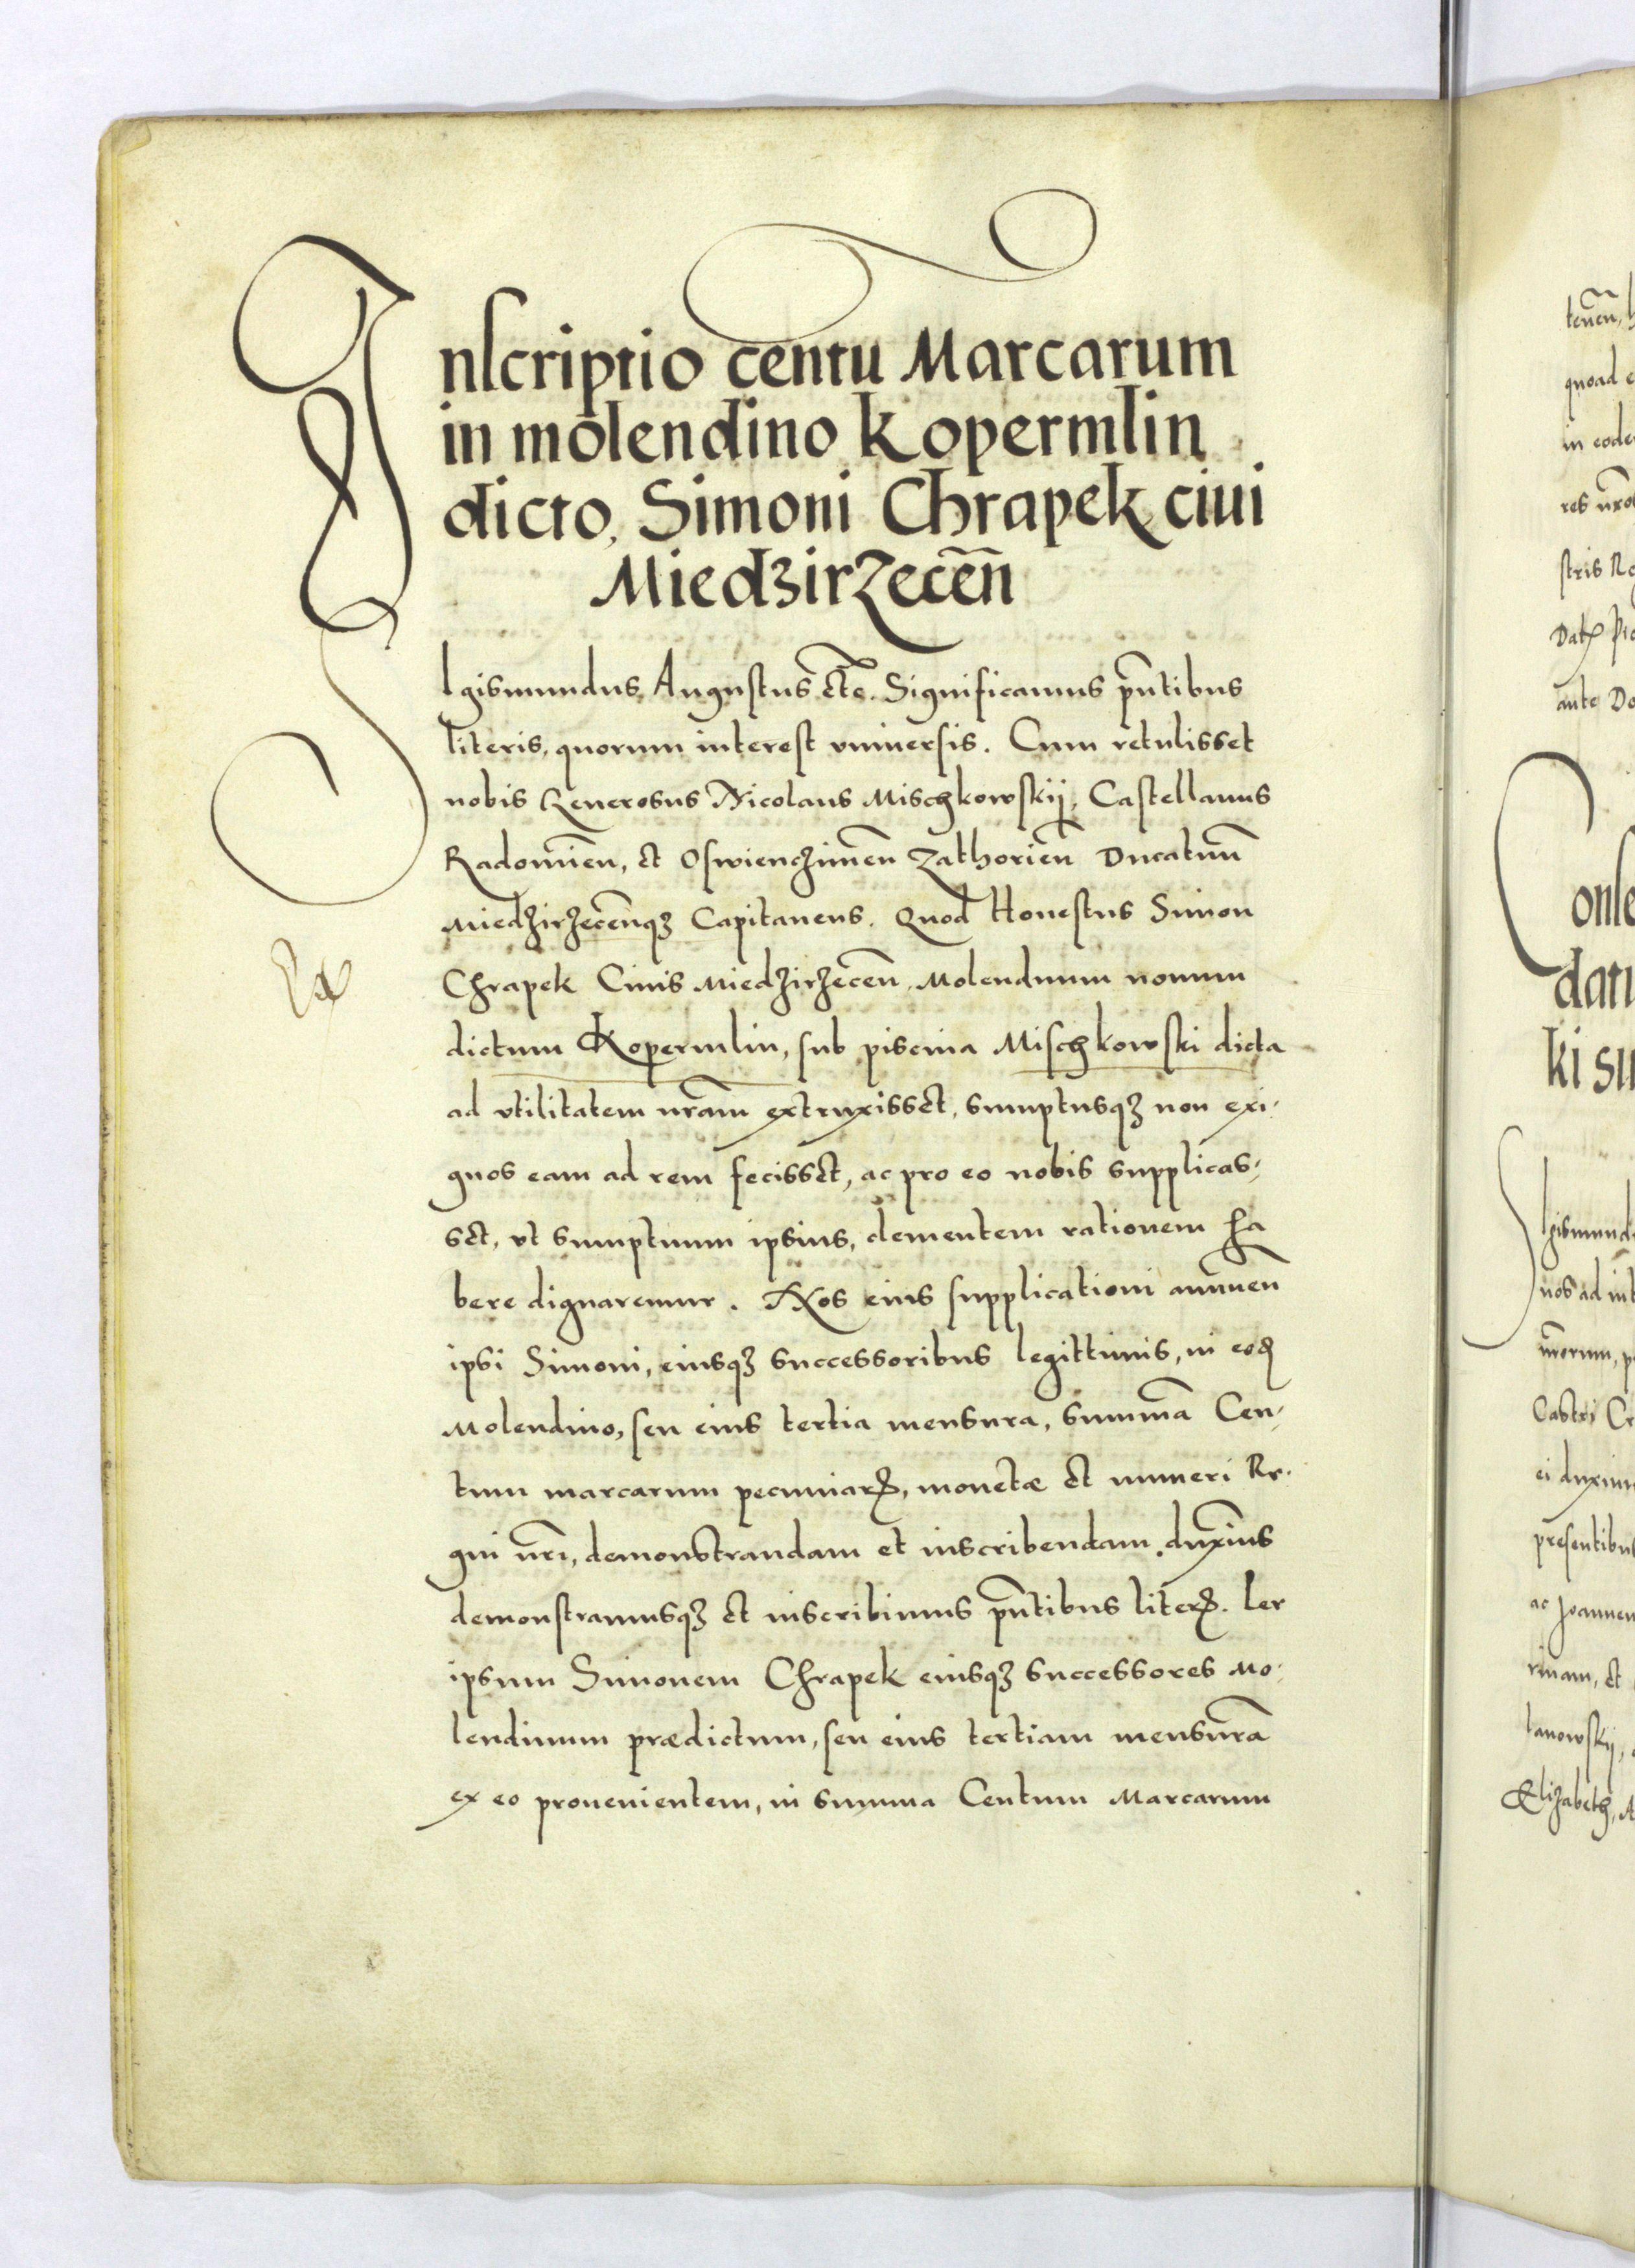 Inscriptio centu Marcarum
in molendino Kopermlin
dicto, Simoni Chrapek ciui
Miedzirzecen̄
Sigismundus Augustus etc. Significamus pn̄tibus
literis, quorum interest vniuersis. Cum retulisset
nobis Generosus Nicolaus Mischkowskij, Castellanus
Radomien̄, et Oswienczimen̄ Zathorien̄ Ducatuu̅
Miedzirzecen̄qꝫ Capitaneus. Quod Honestus Simon
Chrapek Ciuis Miedzirzecen̄ Molendinum nouum
dictum Kopermlin, sub piscina Mischkowski dicta
ad vtilitatem nr̄am extruxisset, sumptusqꝫ non exi-
guos eam ad rem fecisset, ac pro eo nobis supplicas-
set, vt sumptuum ipsius, clementem rationem ha
bere dignaremur. Nos eius supplicationi annuen̄
ipsi Simoni, eiusqꝫ successoribus legittimis, in eod̄
Molendino, seu eius tertia mensura, summā Cen-
tum marcarum pecuniarꝝ, monetæ et numeri Re-
gni nr̄i, demonstrandam et inscribendam duxim̄us
demonstramusqꝫ et inscribimus pn̄tibus literꝭ. Per
ipsum Simonem Chrapek eiusqꝫ successores Mo-
lendinum prædictum, seu eius tertiam mensurā
ex eo prouenientem, in summa Centum Marcarum
tenen̄,
quoad
in
res
stris
Dat̄
ante
Conse
datu
ki su
Sigismund
nos ad
Castri Cr
ei duxim
presentibus
ac Joannem
rinam, et
lanowskij,
Elizabeth,